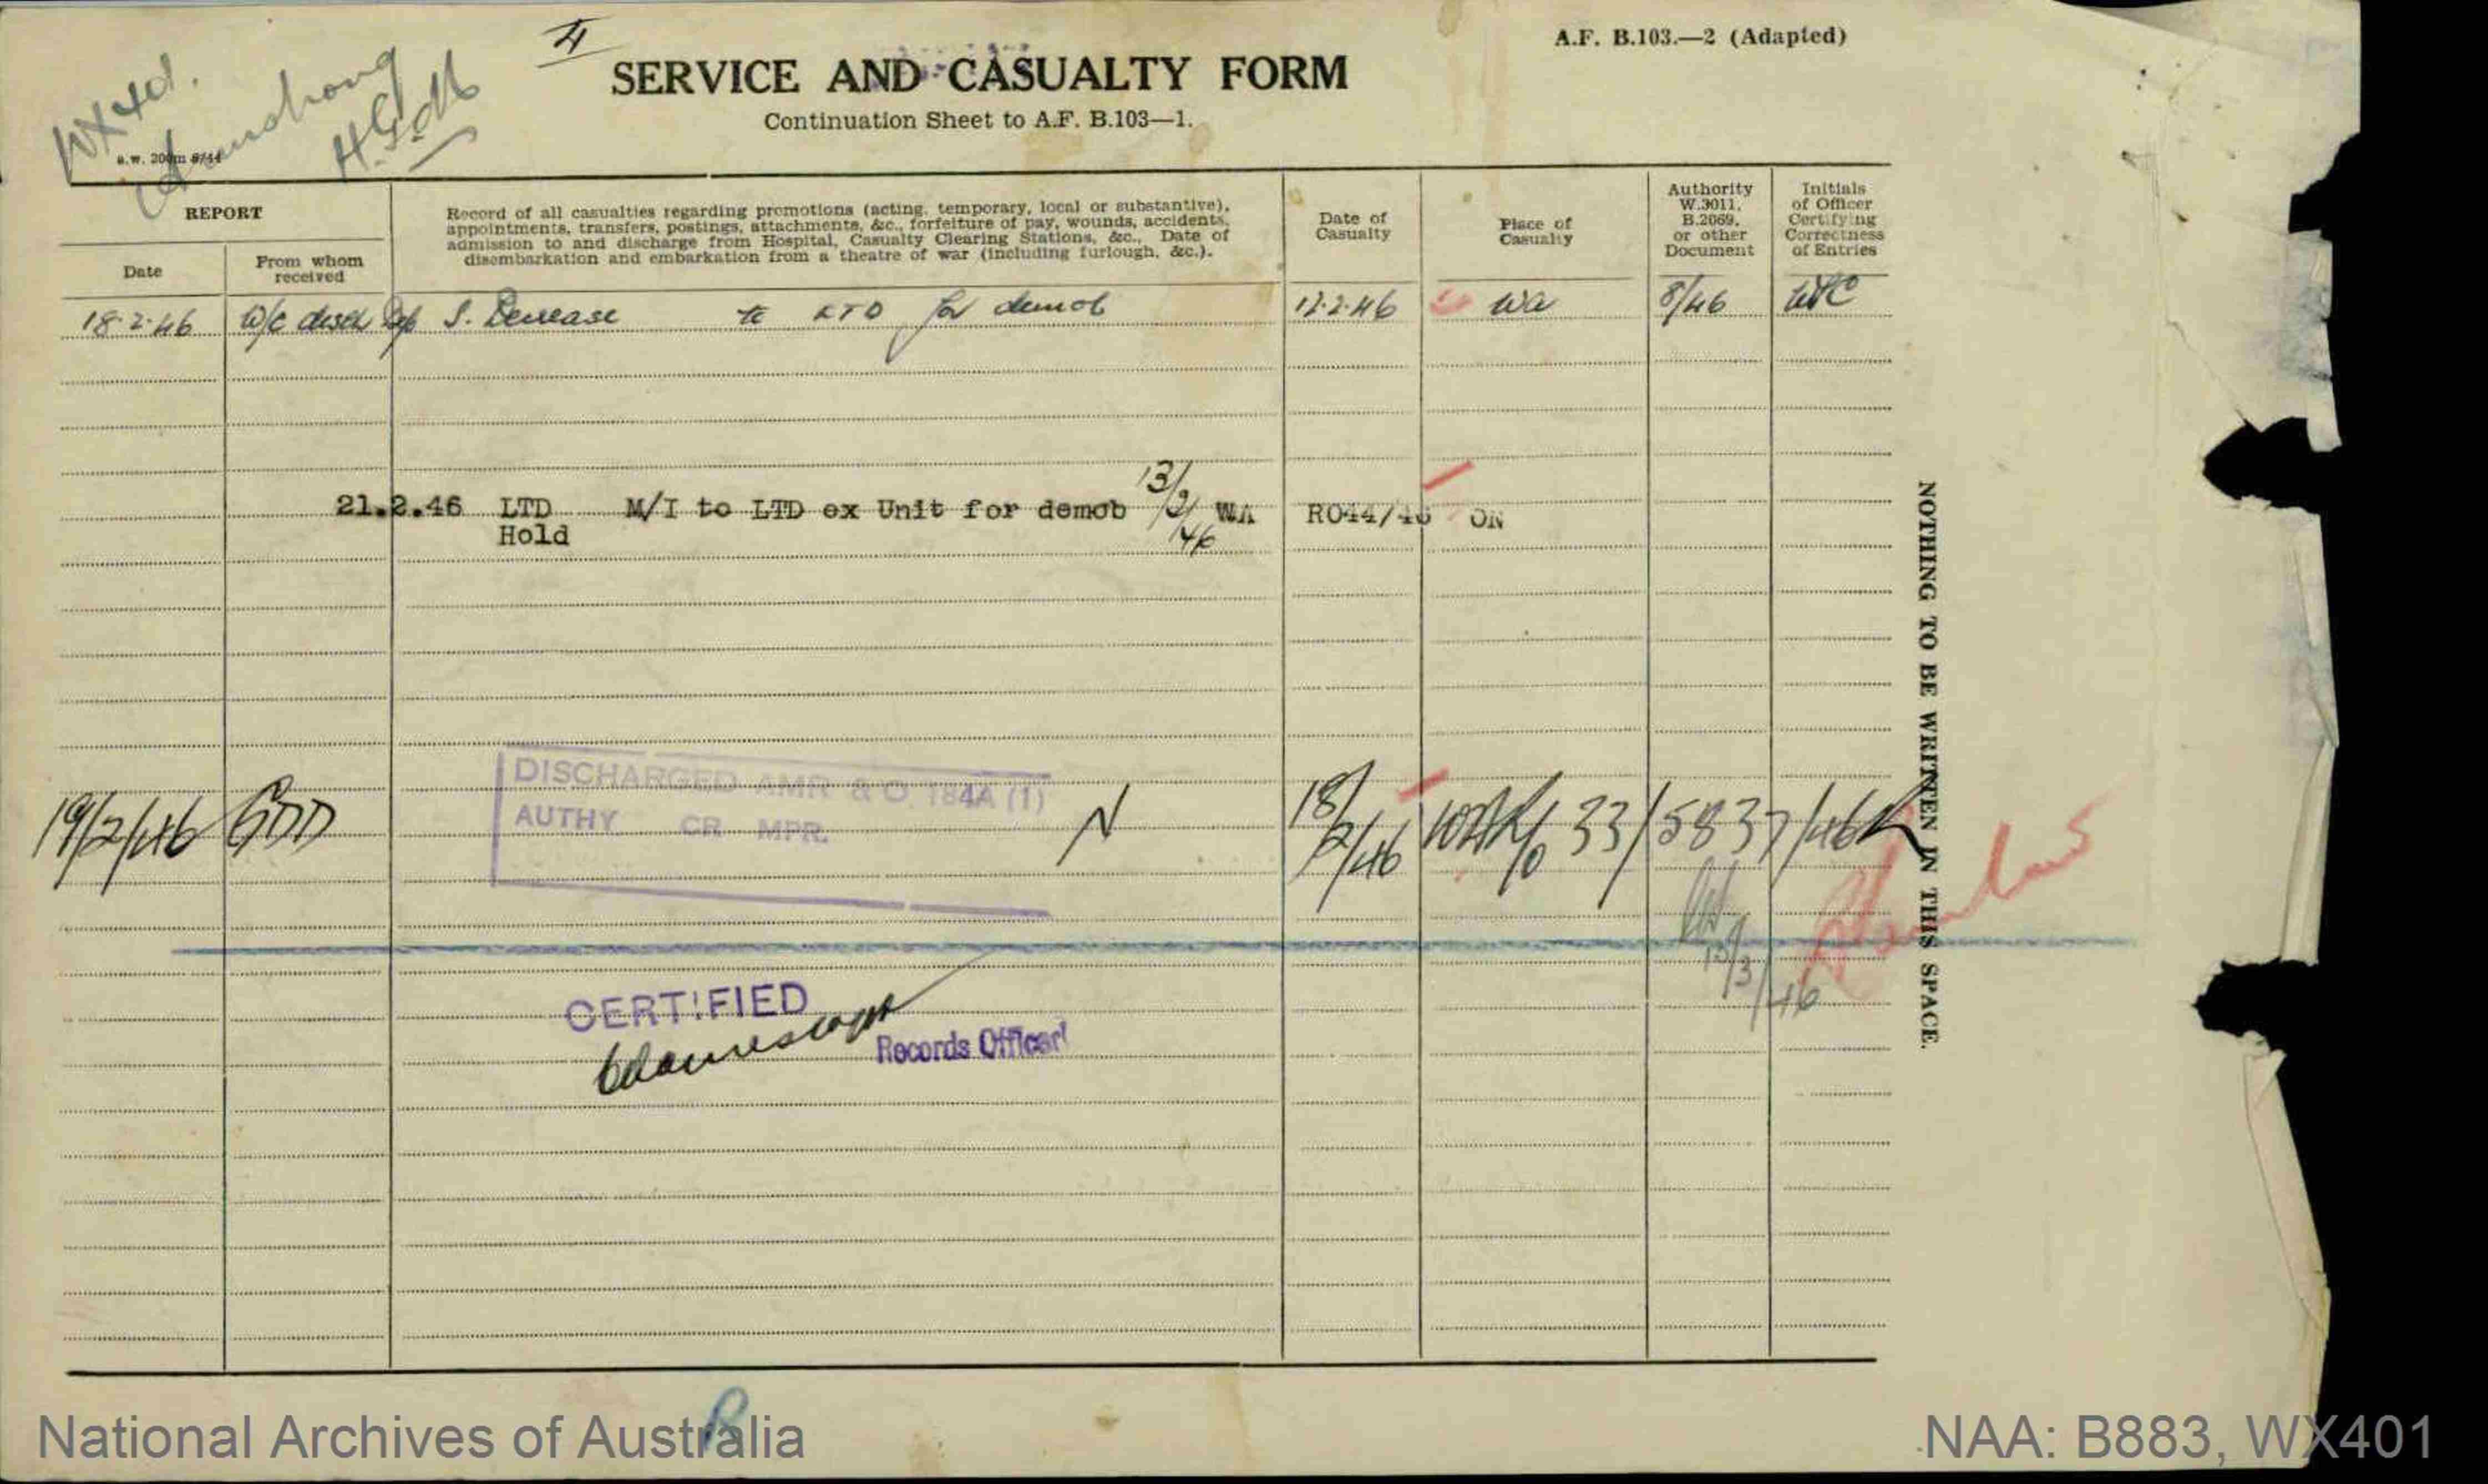 4
A.F. B.103.—2 (Adapted)
SERVICE AND CASUALTY FORM
Continuation Sheet to A.F. B.103—1.
H.G.
s.w. 200m 8/44
REPORT
Date
From whom
received
Record of all casualties regarding promotions (acting, temporary, local or substantive),
appointments, transfers, postings, attachments, &c., forfeiture of pay, wounds, accidents,
admission to and discharge from Hospital, Casualty Clearing Stations, &c., Date of
disembarkation and embarkation from a theatre of war (including furlough, &c.).
Date of
Casualty
Place of
Casualty
Authority
W.3011,
B.2069,
or other
Document
Initials
of Officer
Certifying
Correctness
of Entries
18.2.46 W/C S. Decrease to LTD for demob 12.2.46 WA 8/46
21.2.46 LTD M/I to LTD ex Unit for demob 13/2/46 WA RO44/46 ON
Hold
DISCHARGED AMR & O 184A (1)
AUTHY CR MPR.
19/2/46 GDD N 18/2/46 33/5837/46
13/3/46
CERTIFIED
Records Officer
NOTHING TO BE WRITTEN IN THIS SPACE.
National Archives of Australia
NAA: B883, WX401